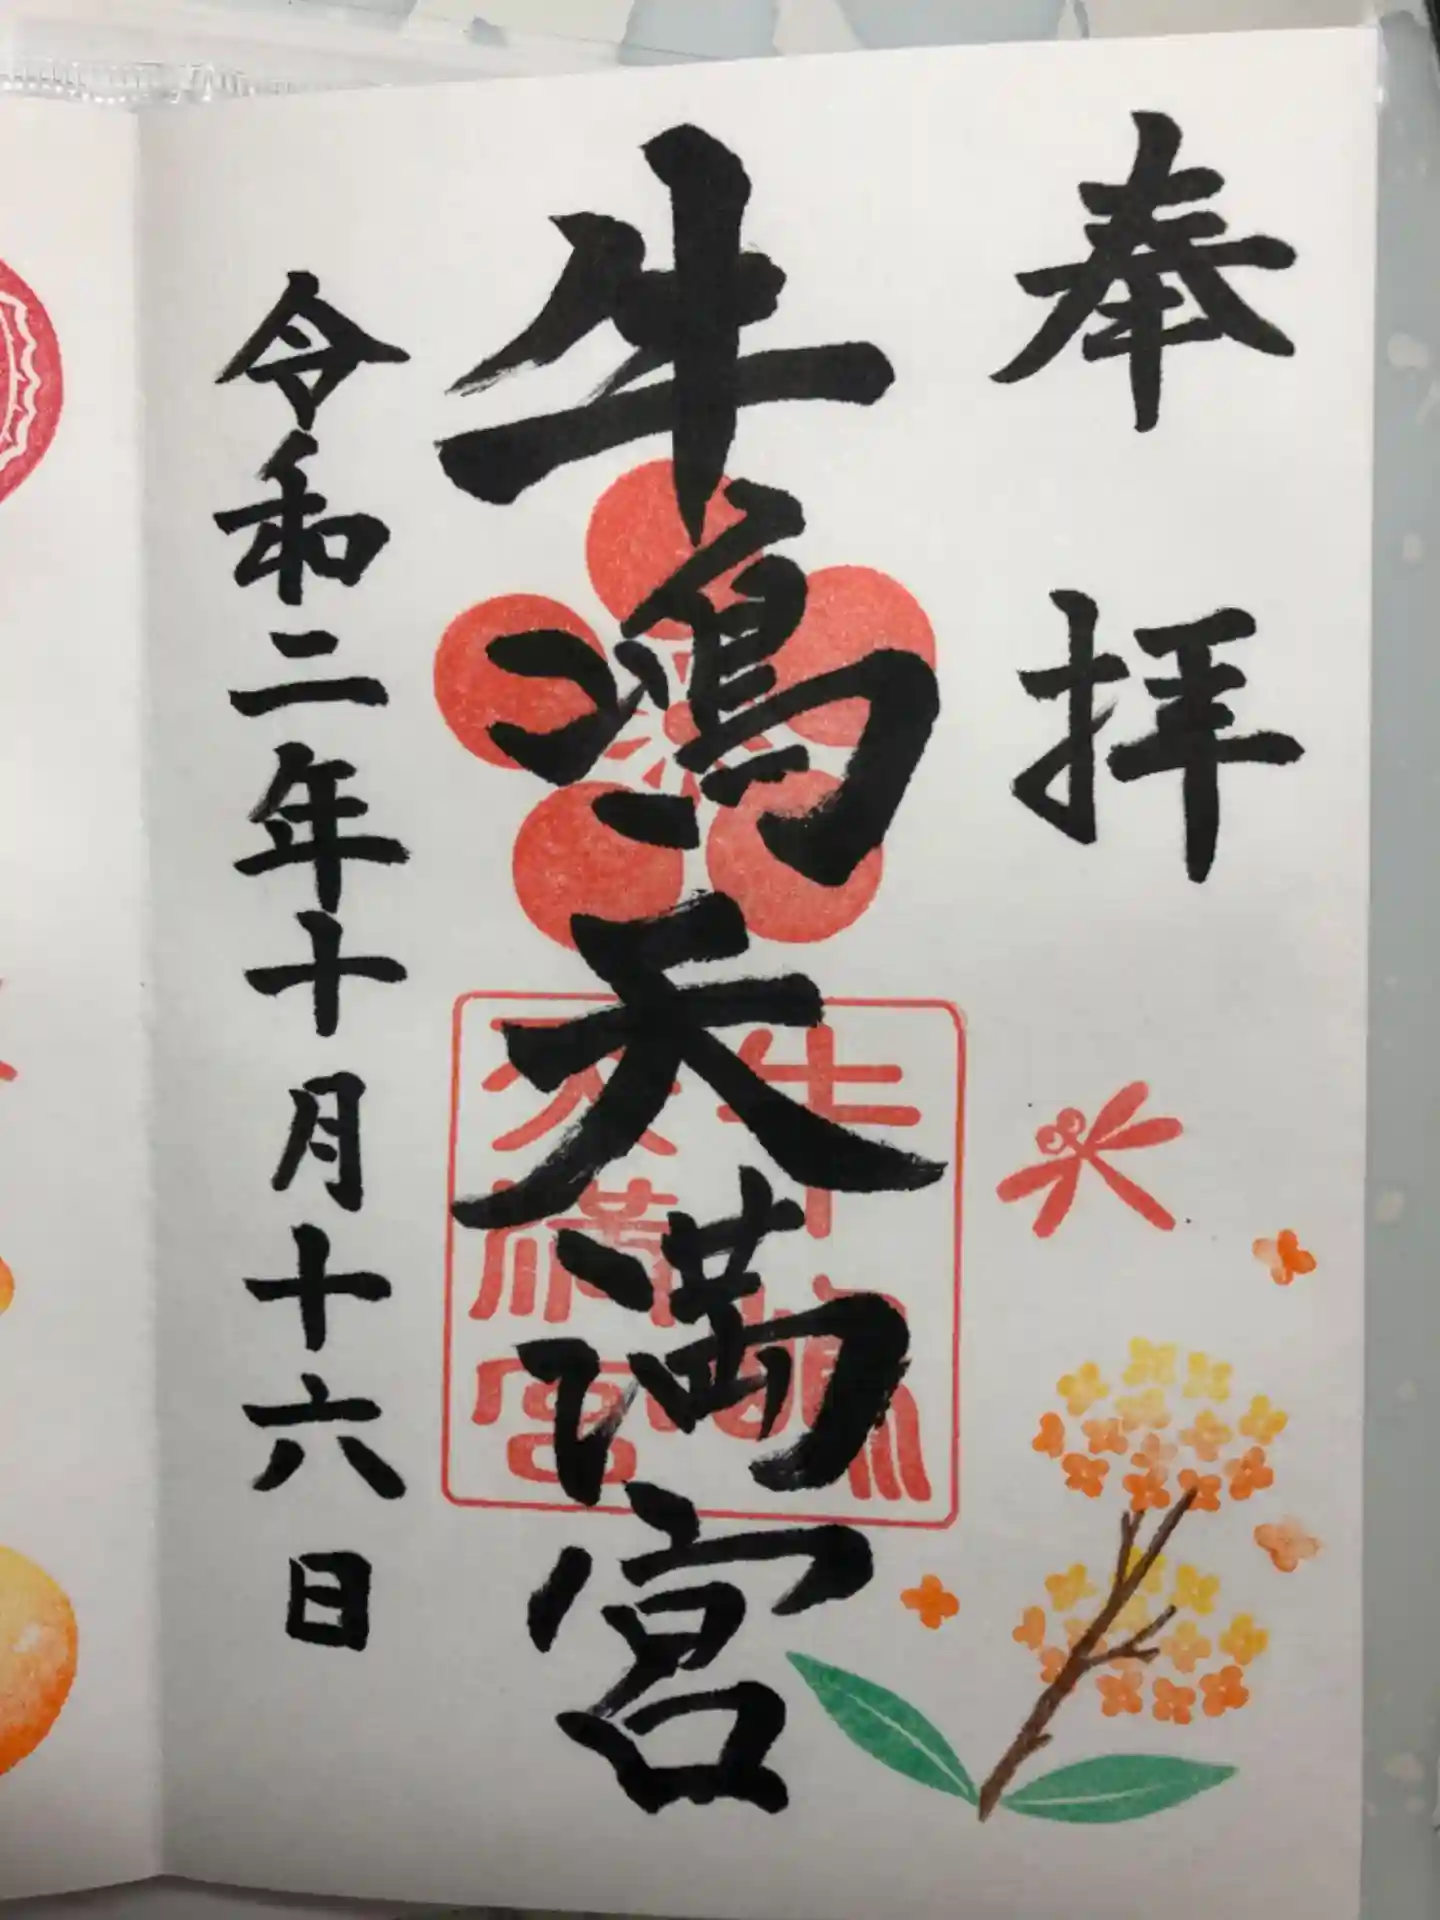 奉拝
牛嶋天満宮
牛嶋
天満宮
令和二年十月十六日